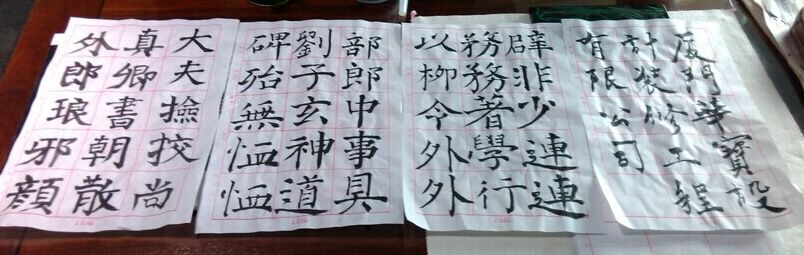 厦门華寶設
計装修工程
有限公司
辟非少連連
務務著學行
以柳令外外
部郎中事具
劉子玄神道
碑殆無恤恤
大夫撿挍尚
真卿書朝散
外郎琅邪顔